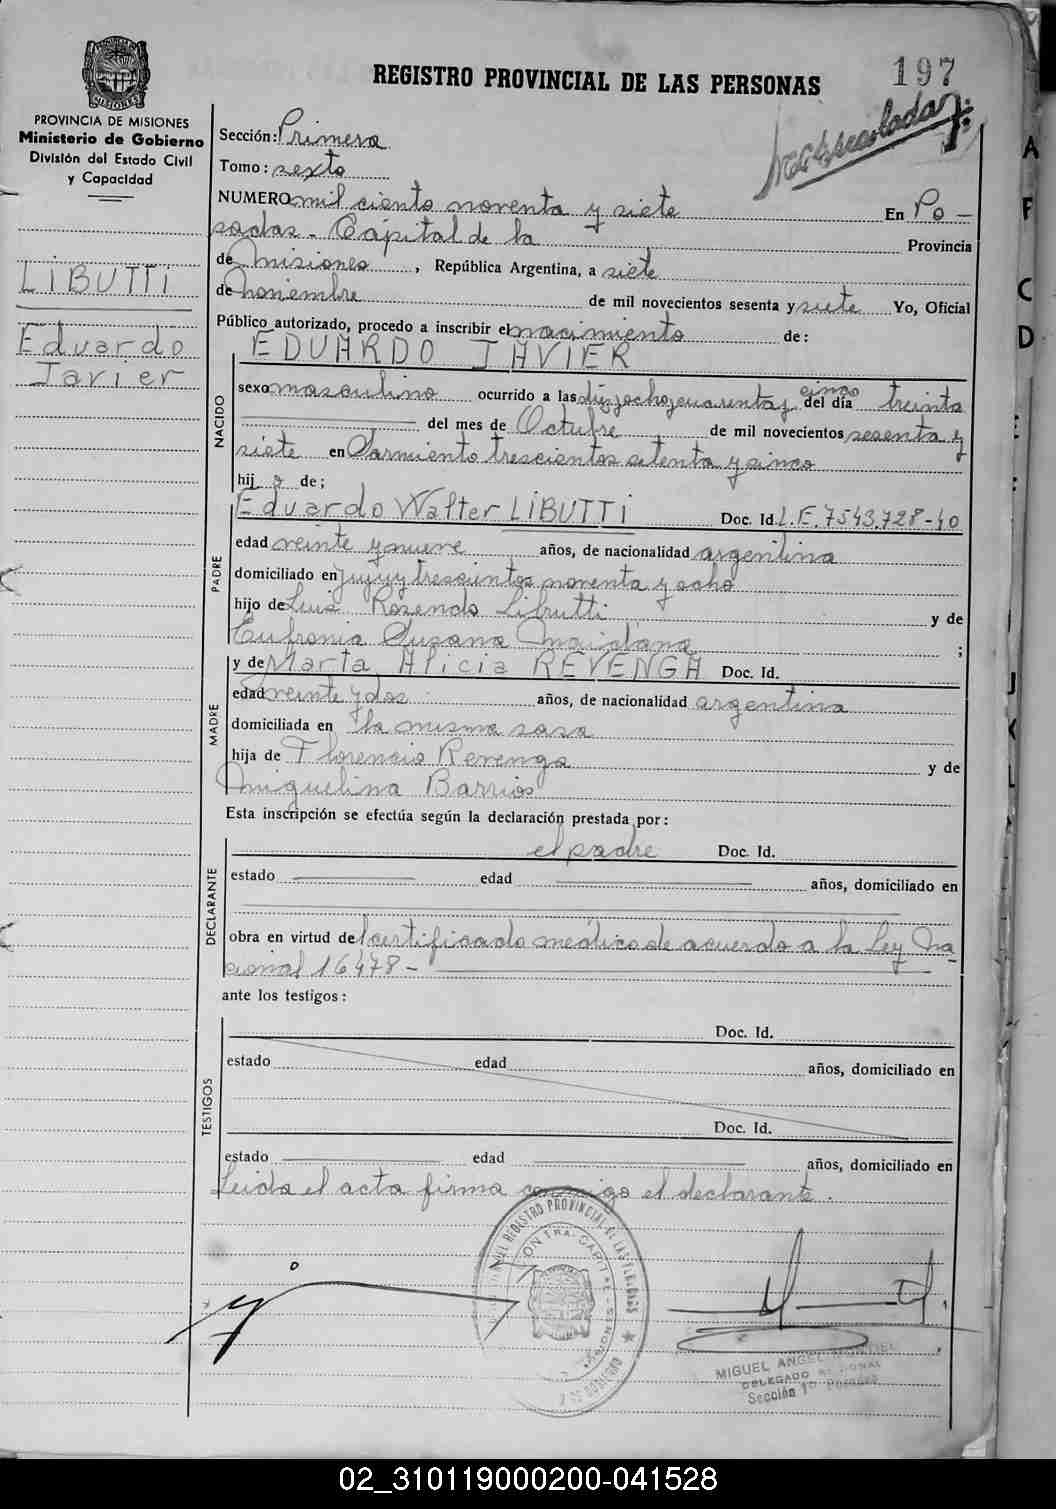 197
REGISTRO PROVINCIAL DE LAS PERSONAS
PROVINCIA DE MISIONES
Ministerio de Gobierno
División del Estado Civil
y Capacidad
Sección: Primera
Tomo: sexto
NUMERO mil ciento noventa y siete En Po-
sadas - Capital de la Provincia
de Misiones, República Argentina, a siete
de noviembre de mil novecientos sesenta y siete Yo, Oficial
Público autorizado, procedo a inscribir el nacimiento de:
LIBUTTI
Eduardo
Javier
NACIDO
EDUARDO JAVIER
sexo masculino ocurrido a las dieziocho y cuarenta y cinco del día treinta
del mes de Octubre de mil novecientos sesenta y
siete en Sarmiento trescientos setenta y cinco
hij o de;
PADRE
Eduardo Walter LIBUTTI Doc. Id. L.E. 7543.728-40
edad veinte y nueve años, de nacionalidad argentina
domiciliado en Jujuy trescientos noventa y ocho
hijo de Luis Rosendo Libutti y de
Eufronia Susana Maidana ;
MADRE
y de Marta Alicia REVENGA Doc. Id.
edad veinte y dos años, de nacionalidad argentina
domiciliada en la misma casa
hija de Florencio Revenga y de
Miguelina Barrios
Esta inscripción se efectúa según la declaración prestada por:
DECLARANTE
el padre Doc. Id.
estado edad años, domiciliado en
obra en virtud del certificado médico de acuerdo a la Ley Na-
cional 16478-
ante los testigos:
TESTIGOS
Doc. Id.
estado edad años, domiciliado en
Doc. Id.
estado edad años, domiciliado en
Leida el acta firma conmigo el declarante.
MIGUEL ANGEL
DELEGADO
Sección 1ª Posadas
02_310119000200-041528